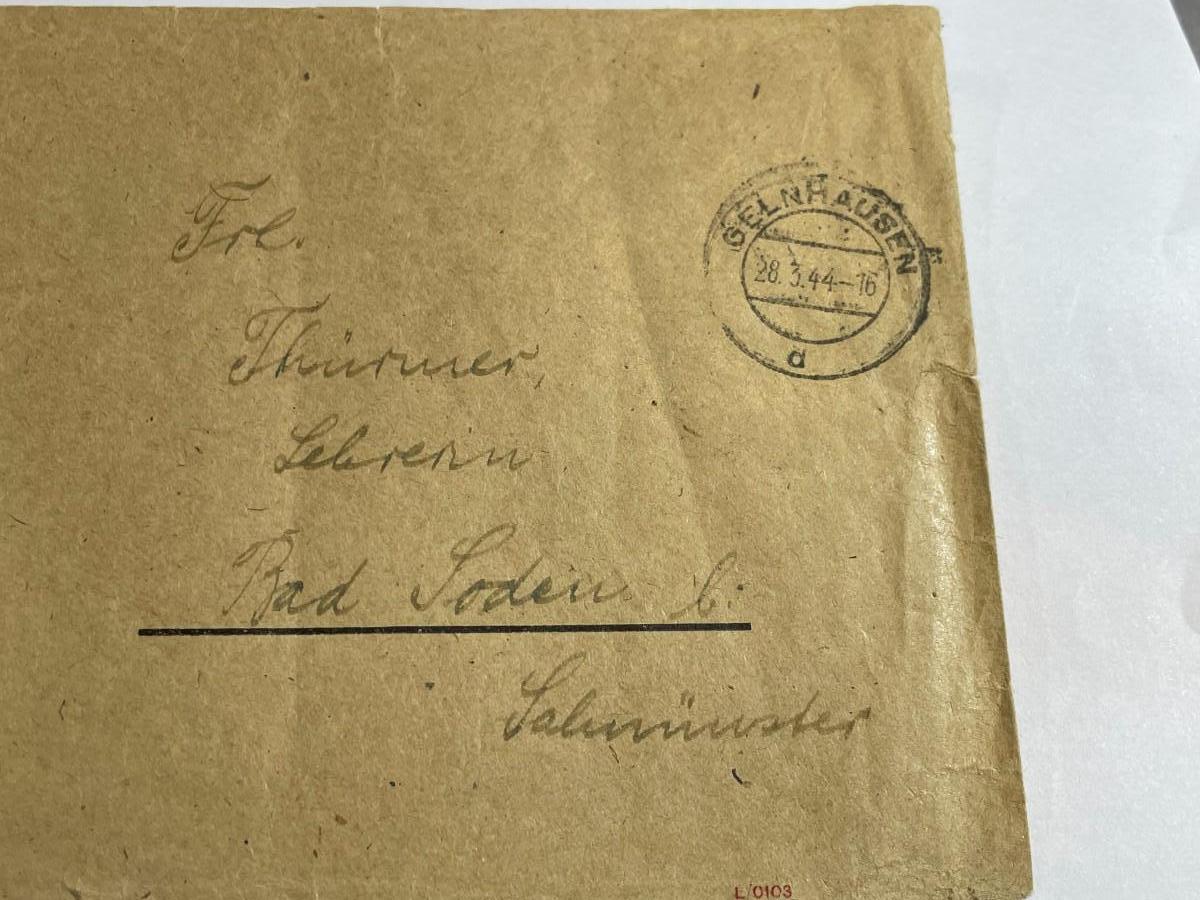 Frl.
GELNHAUSEN
28.3.44-16
d
Thürmer,
Lehrerin
Bad Soden b:
Salmünster
L 0103